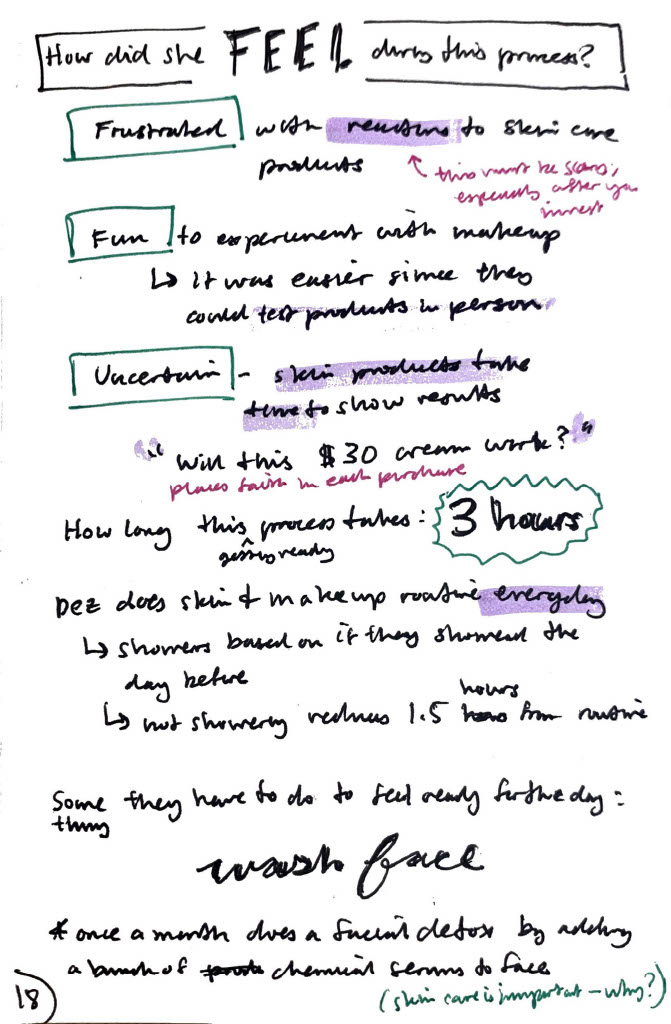 How did she FEEL during this process?
Frustrated with reactions to skin care
products
this must be scary,
especially after you
invest
Fun to experiment with makeup
↳ it was easier since they
could test products in person
Uncertain - skin products take
time to show results
"Will this $30 cream work?"
places faith in each purchase
How long this process takes: 3 hours
^getting ready
Dez does skin & makeup routine everyday
↳ showers based on if they showered the
day before
↳ not showering reduces 1.5 hours from routine
Some they have to do to feel ready for the day:
thing
wash face
* once a month does a facial detox by adding
a bunch of chemical serums to face
(skin care is important - why?)
18